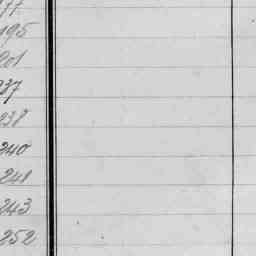 177
195
201
237
238
240
241
243
252